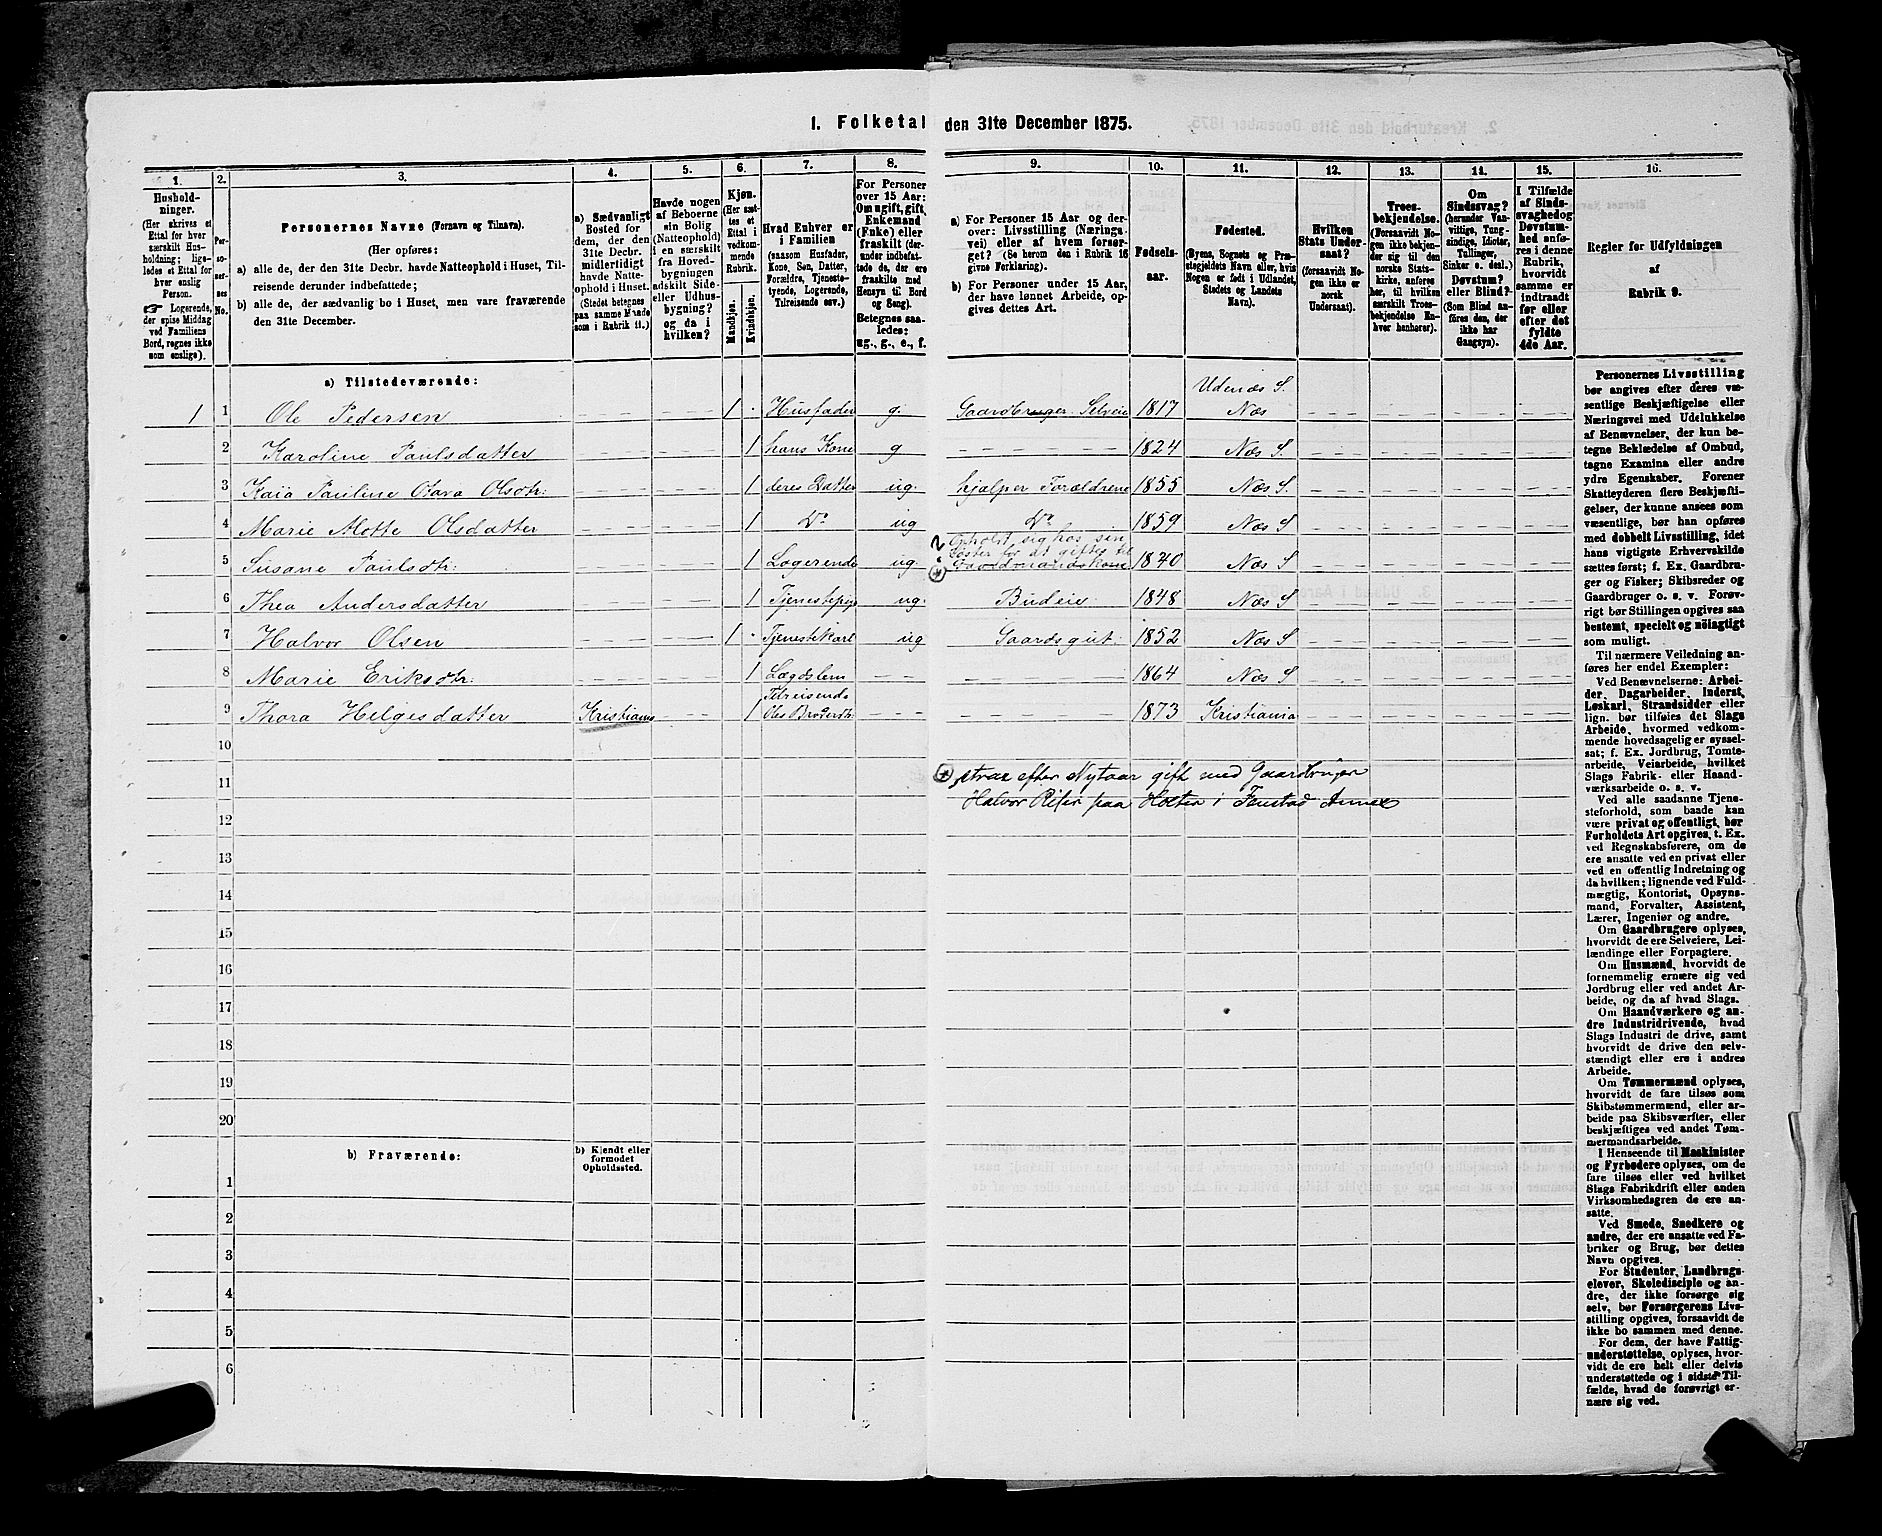 1. Folketal den 31te December 1875.
1.
2.
3.
4.
5.
6.
7.
8.
9.
10.
11.
12.
13.
14.
15.
16.
Hushold-
ninger.
(Her skrives et
Ettal for hver
særskilt Hus-
holdning; lige-
ledes et Ettal for
hver enslig
Person.
☞ Logerende,
der spise Middag
ved Familiens
Bord, regnes ikke
som enslige).
Per-
so-
ner-
nes
No.
Personernes Navne (Fornavn og Tilnavn).
(Her opføres:
a) alle de, der den 31te Decbr. havde Natteophold i Huset, Til-
reisende derunder indbefattede;
b) alle de, der sædvanlig bo i Huset, men vare fraværende
den 31te December.
a) Sædvanligt
Bosted for
dem, der den
31te Decbr.
midlertidigt
havde Natte-
ophold i Huset.
(Stedet betegnes
paa samme Maade
som i Rubrik 11.)
Havde nogen
af Beboerne
sin Bolig
(Natteophold)
i en særskilt
fra Hoved-
bygningen
adskilt Side-
eller Udhus-
bygning?
og da i
hvilken?
Kjøn.
(Her sæt-
tes et
Ettal i
vedkom-
mende
Rubrik.
Mandkjøn.
Kvindekjøn.
Hvad Enhver er
i Familien
(saasom Husfader,
Kone, Søn, Datter,
Forældre, Tjeneste-
tyende, Logerende,
Tilreisende osv.)
For Personer
over 15 Aar:
Om ugift, gift,
Enkemand
(Enke) eller
fraskilt (der-
under indbefat-
tede de, der ere
fraskilte med
Hensyn til Bord
og Seng).
Betegnes saa-
ledes:
ug., g., e., f.
a) For Personer 15 Aar og der-
over: Livsstilling (Nærings-
vei) eller af hvem forsør-
get? (Se herom den i Rubrik 16
givne Forklaring).
b) For Personer under 15 Aar,
der have lønnet Arbeide, op-
gives dettes Art.
Fødsels-
aar.
Fødested.
(Byens, Sognets og Præ-
stegjeldets Navn eller, hvis
Nogen er født i Udlandet,
Stedets og Landets
Navn).
Hvilken
Stats Under-
saat?
(forsaavidt No-
gen ikke er
norsk
Undersaat).
Troes-
bekjendelse.
(Forsaavidt No-
gen ikke bekjen-
der sig til den
norske Stats-
kirke, anføres
her, til hvilken
særskilt Troes-
bekjendelse En-
hver henhører).
Om
Sindssvag?
(herunder Van-
vittige, Tung-
sindige, Idioter,
Tullinger,
Sinker o. desl.)
Døvstum?
eller Blind?
(Som Blind an-
føres den, der
ikke har
Gangsyn).
I Tilfælde
af Sinds-
svaghed og
Døvstum-
hed anfø-
res i denne
Rubrik,
hvorvidt
samme er
indtraadt
før eller
efter det
fyldte
4de Aar.
Regler for Udfyldningen
af
Rubrik 9.
a) Tilstedeværende:
1 1 Ole Pedersen 1 Husfader g. Gaardbruger Selveie 1817 Udenæs S. Næs
2 Karoline Paulsdatter 1 hans Kone g 1824 Næs S.
3 Kaia Pauline Olava Olsdtr. 1 deres Datter ug. hjælper Forældrene 1855 Næs S.
4 Marie Olsdatter 1 Do ug Do 1859 Næs S
5 Susane Paulsdtr. 1 Logerende ug. Opholdt sig hos sin Søster for at giftes til Gaardmandskone 1840 Næs S
6 Thea Andersdatter 1 Tjenestepige ug. Budeie 1848 Næs S
7 Halvor Olsen 1 Tjenestekarl ug Gaardsgut. 1852 Næs S
8 Marie Eriksdtr. 1 Lægdslem 1864 Næs S
9 Thora Helgesdatter Kristiania 1 Tilreisende Oles Broderdtr. 1873 Kristiania
10
11 strax efter Nytaar gift med Gaardbruger
Halvor paa Holter i Fenstad Annex
12
13
14
15
16
17
18
19
20
b) Fraværende:
b) Kjendt eller
formodet
Opholdssted.
1
2
3
4
5
6
Personernes Livsstilling
bør angives efter deres væ-
sentlige Beskjæftigelse eller
Næringsvei med Udelukkelse
af Benævnelser, der kun be-
tegne Beklædelse af Ombud,
tagne Examina eller andre
ydre Egenskaber. Forener
Skatteyderen flere Beskjæfti-
gelser, der kunne ansees som
væsentlige, bør han opføres
med dobbelt Livsstilling, idet
hans vigtigste Erhvervskilde
sættes først; f. Ex. Gaardbru-
ger og Fisker; Skibsreder og
Gaardbruger o. s. v. Forøv-
rigt bør Stillingen opgives saa
bestemt, specielt og nøiagtigt
som muligt.
Til nærmere Veiledning an-
føres her endel Exempler:
Ved Benævnelserne: Arbei-
der, Dagarbeider, Inderst,
Løskarl, Strandsidder eller
lign. bør tilføies det Slags
Arbeide, hvormed vedkom-
mende hovedsagelig er syssel-
sat; f. Ex. Jordbrug, Tomte-
arbeide, Veiarbeide, hvilket
Slags Fabrik- eller Haand-
værksarbeide o. s. v.
Ved alle saadanne Tjen-
steforhold, som baade kan
være privat og offentligt, bør
Forholdets Art opgives, t. Ex.
ved Regnskabsførere, om de
ere ansatte ved en privat eller
ved en offentlig Indretning og
da hvilken; lignende ved Fuld-
mægtig, Kontorist, Opsyns-
mand, Forvalter, Assistent,
Lærer, Ingeniør og andre.
Om Gaardbrugere oplyses,
hvorvidt de ere Selveiere, Lei-
lændinge eller Forpagtere.
Om Husmænd, hvorvidt de
fornemmelig ernære sig ved
Jordbrug eller ved andet Ar-
beide, og da af hvad Slags.
Om Haandværkere og an-
dre Industridrivende, hvad
Slags Industri de drive, samt
hvorvidt de drive den selv-
stændigt eller ere i andres
Arbeide.
Om Tømmermænd oplyses,
hvorvidt de fare tilsøs som
Skibstømmermænd, eller ar-
beide paa Skibsværfter, eller
beskjæftiges ved andet Tøm-
mermandsarbeide.
I Henseende til Maskinister
og Fyrbødere oplyses, om de
fare tilsøs eller ved hvilket
Slags Fabrikdrift eller anden
Virksomhedsgren de ere an-
satte.
Ved Smede, Snedkere og
andre, der ere ansatte ved Fa-
briker og Brug, bør dettes
Navn opgives.
For Studenter, Landbrugs-
elever, Skoledisciple og an-
dre, der ikke forsørge sig
selv, bør Forsørgerens Livs-
stilling opgives, forsaavidt de
ikke bo sammen med denne.
For dem, der have Fattig-
understøttelse, oplyses, hvor-
vidt de ere helt eller delvis
understøttede og i sidste Til-
fælde, hvad de forøvrigt er-
nære sig ved.